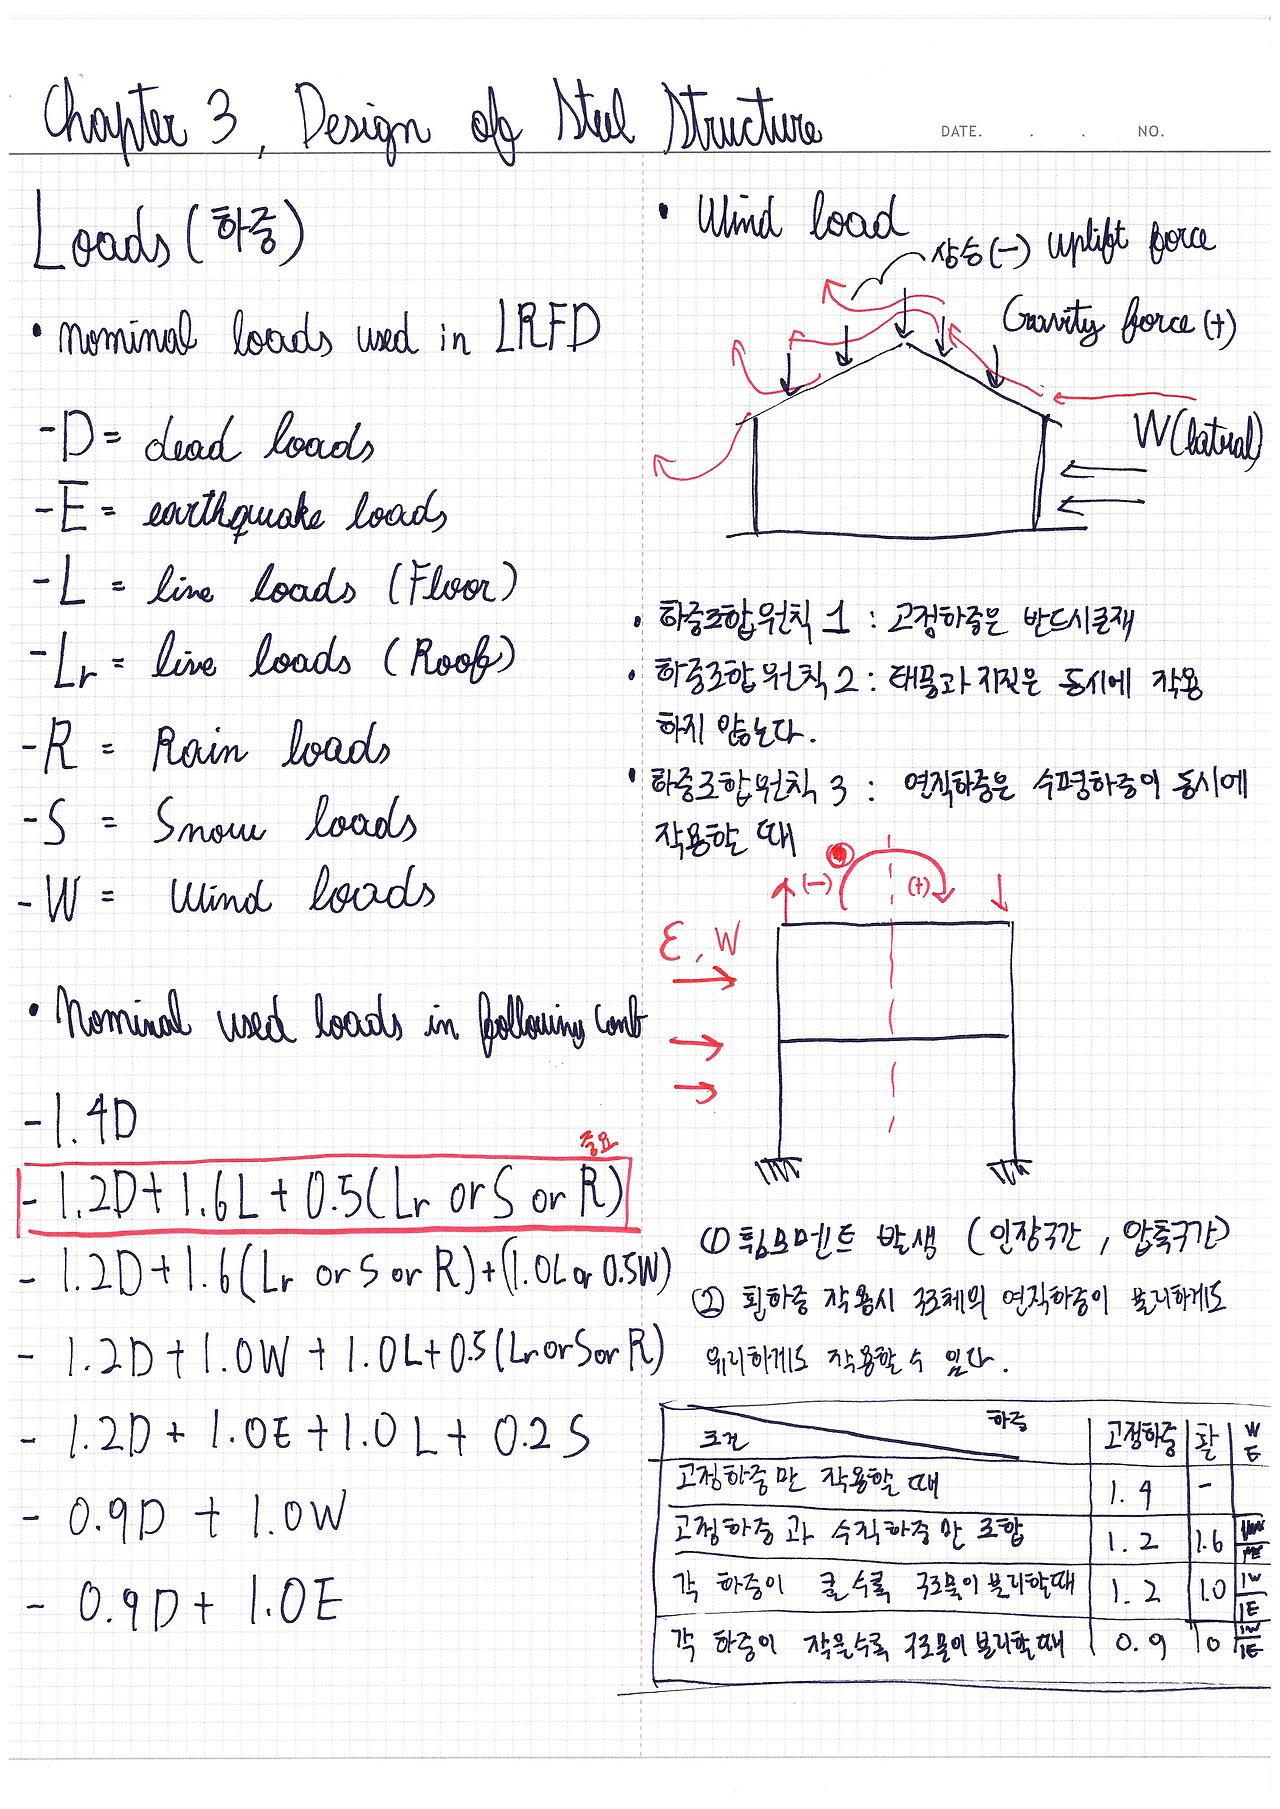 Chapter 3, Design of Steel Structure
DATE. . . NO.
Loads (하중)
• nominal loads used in LRFD
- D = dead loads
- E = earthquake loads
- L = live loads (Floor)
- Lr = live loads (Roof)
- R = Rain loads
- S = Snow loads
- W = Wind loads
• Nominal used loads in following comb
- 1.4D
중요
- 1.2D + 1.6L + 0.5(Lr or S or R)
- 1.2D + 1.6(Lr or S or R) + (1.0L or 0.5W)
- 1.2D + 1.0W + 1.0L + 0.5(Lr or S or R)
- 1.2D + 1.0E + 1.0L + 0.2S
- 0.9D + 1.0W
- 0.9D + 1.0E
• Wind load
상승(-) uplift force
Gravity force (+)
W(lateral)
• 하중조합원칙 1 : 고정하중은 반드시존재
• 하중조합원칙 2 : 태풍과 지진은 동시에 작용
하지 않는다.
• 하중조합원칙 3 : 연직하중은 수평하중이 동시에
작용할 때
(-) (+)
E, W
① 휨모멘트 발생 (인장구간, 압축구간)
② 횡하중 작용시 구조체의 연직하중이 불리하게도
유리하게도 작용할 수 있다.
하중
조건 고정하중 활 W E
고정하중만 작용할 때 1.4 -
고정하중과 수직하중만 조합 1.2 1.6
각 하중이 클수록 구조물이 불리할때 1.2 1.0 1W 1E
각 하중이 작을수록 구조물이 불리할때 0.9 0 1W 1E